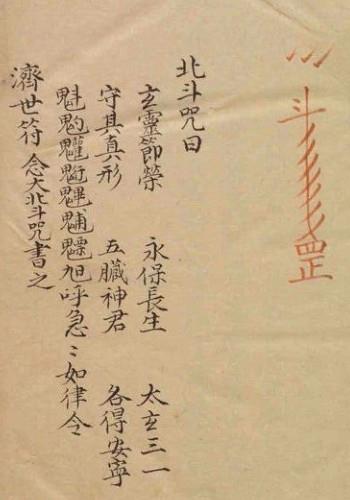 斗罡
北斗咒曰
玄靈節榮 永保長生 太玄三一
守其真形 五臟神君 各得安寧
魁 魒旭呼急〻如律令
濟世符 念大北斗咒書之